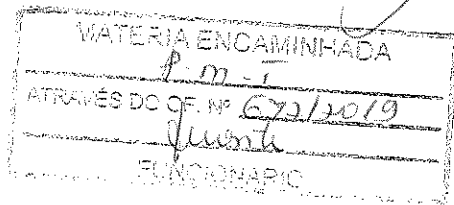 MATERIA ENCAMINHADA
P.M.I
ATRAVÉS DO OF. Nº 672/2019
FUNCIONARIO